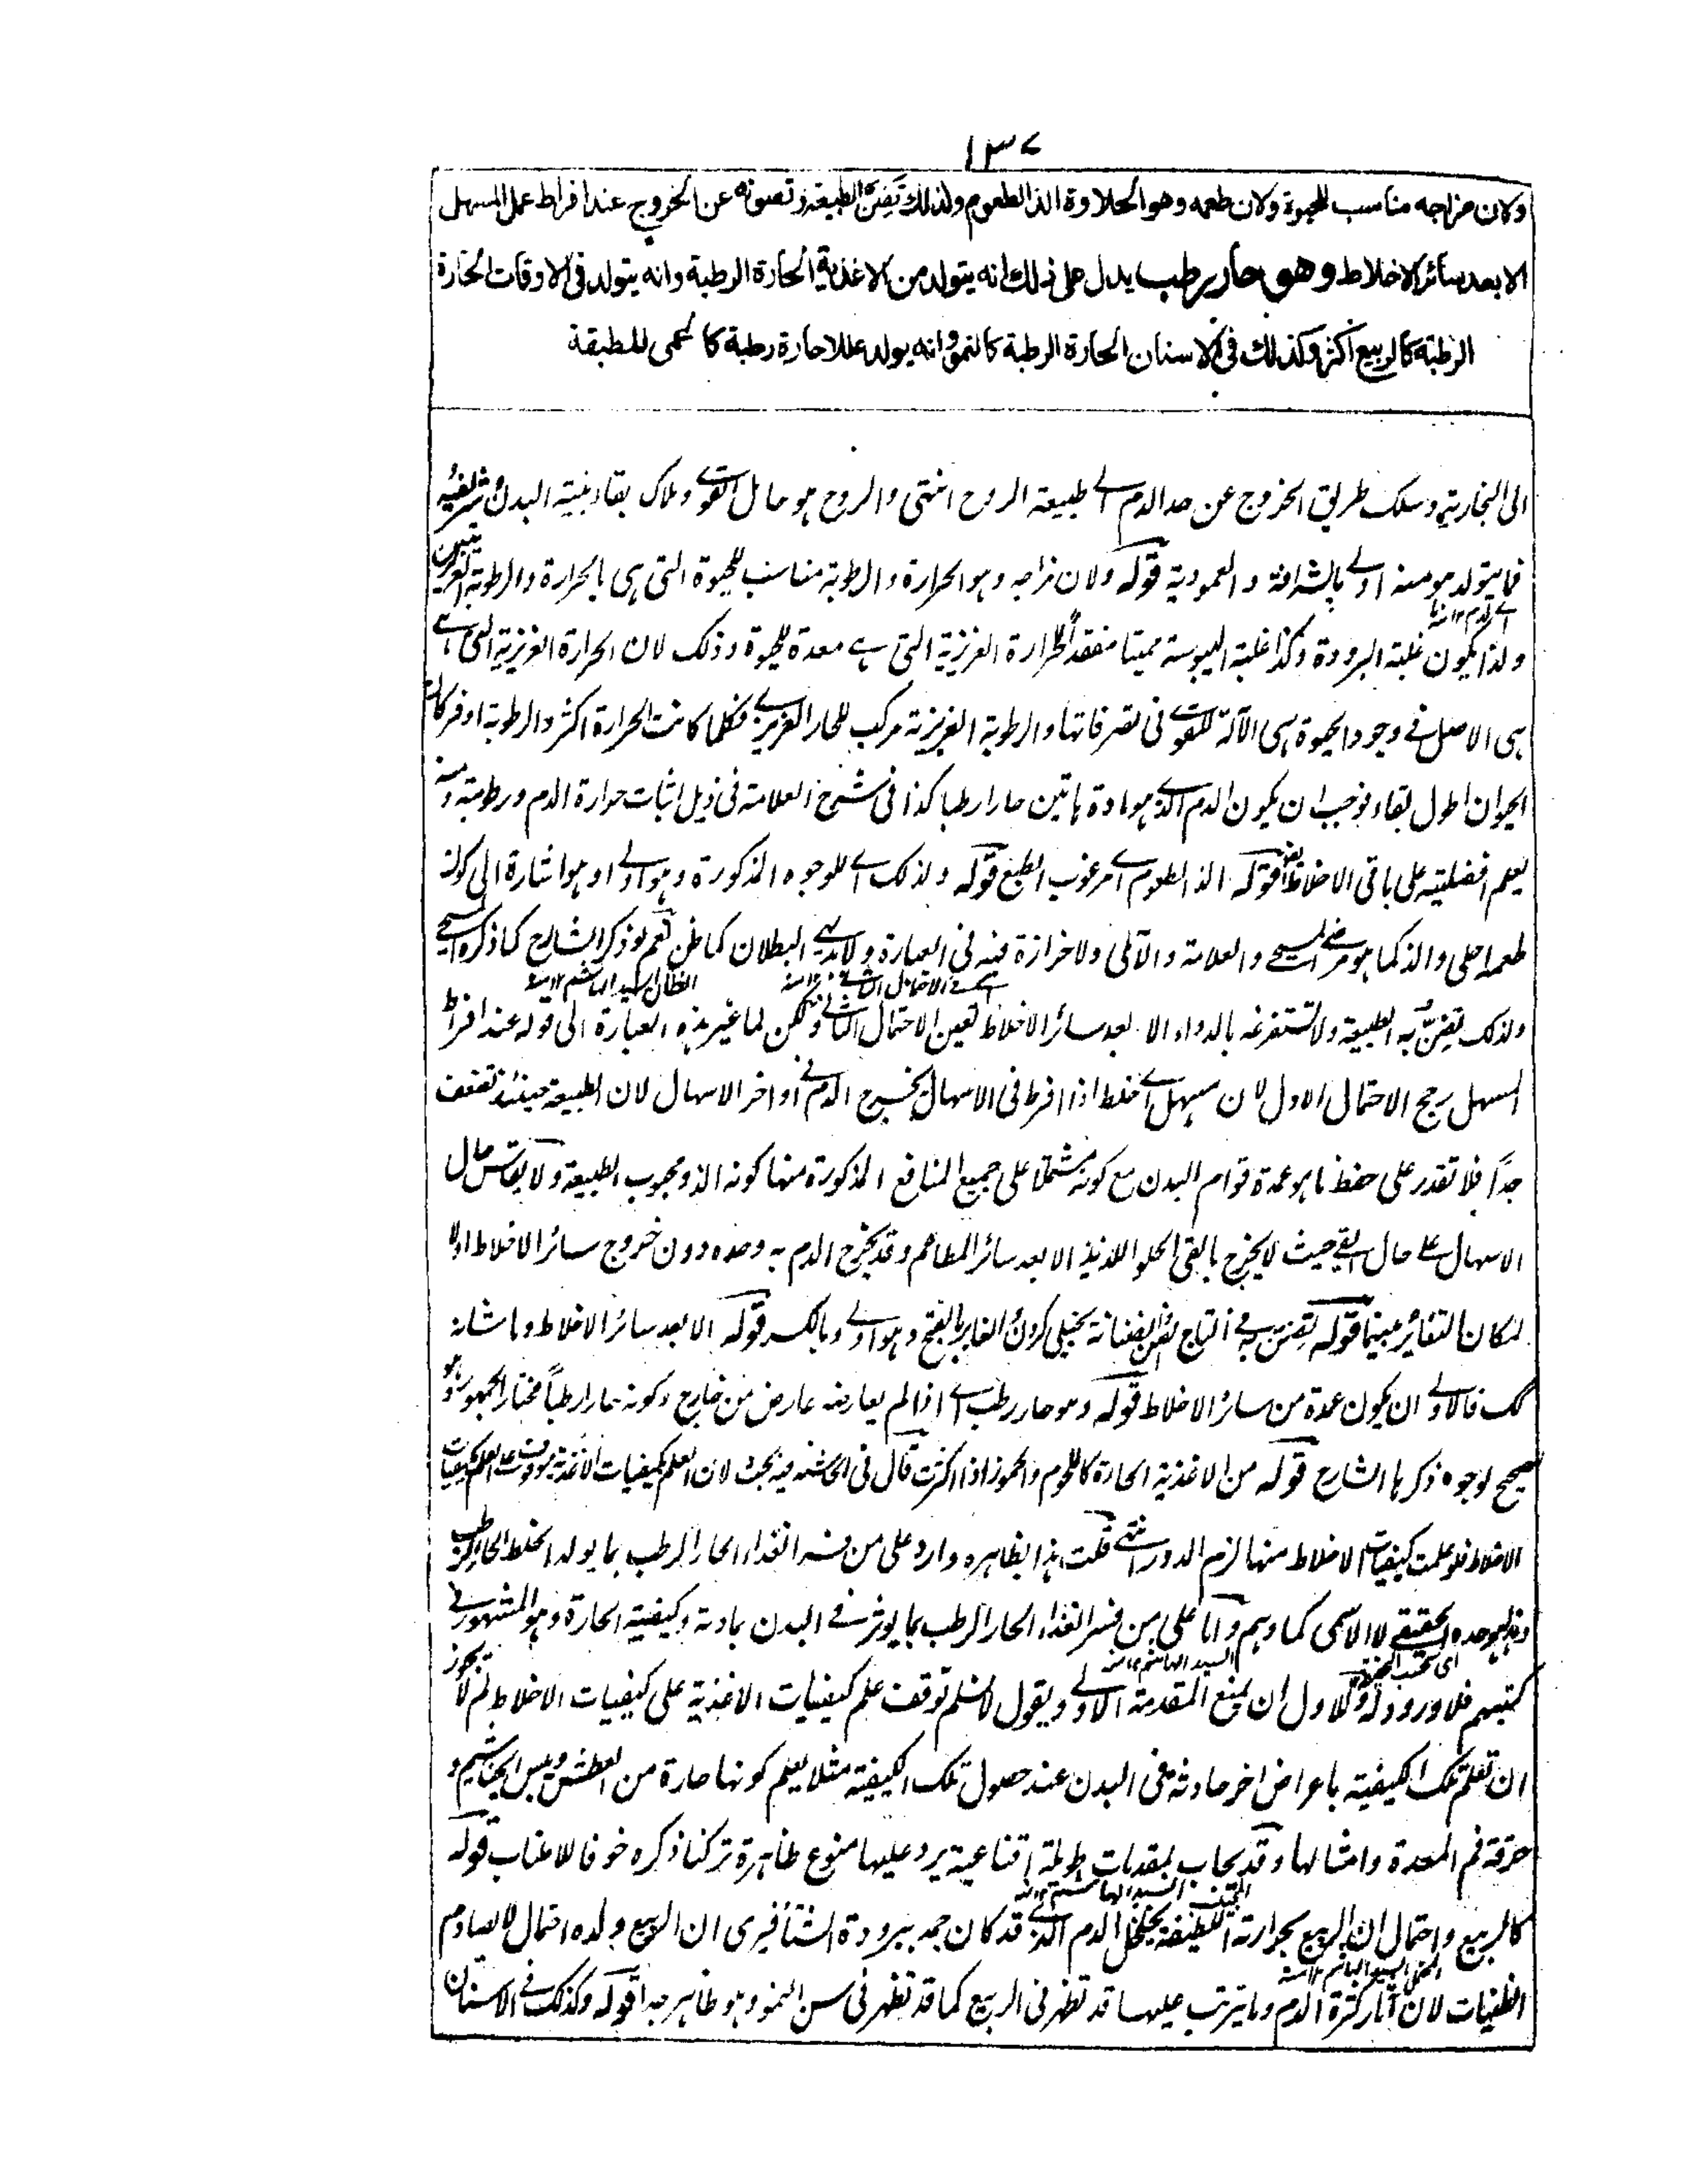 ١٣٧
ولان مزاجه مناسب للحيوة ولان طعمه وهو الحلاوة الذ الطعوم ولذلك تضن الطبيعة وتصونه عن الخروج عند افراط عمل المسهل
الا بعد سائر الاخلاط وهو حار رطب يدل على ذلك انه يتولد من الاغذية الحارة الرطبة وانه يتولد فى الاوقات الحارة
الرطبة كالربيع اكثر وكذلك فى الاسنان الحارة الرطبة كالنمو وانه يولد عللا حارة رطبة كالحمى المطبقة
الى البخارية وسلك طريق الخروج عن حد الدم الے طبيعة الروح انتهى والروح هو حامل القوے وملاک بقاء بنية البدن وشريفه
فما يتولد هو منه اولے بالشرافة والعمودية قوله ولان مزاجه وهو الحرارة والرطوبة مناسب للحيوة التى هى بالحرارة والرطوبة الغريزيتين
ولذا يكون غلبة البرودة وكذا غلبة اليبوسة مميتا مفقد الحرارة الغريزية التى هے معدة للحيوة وذلك لان الحرارة الغريزية التى هے
هى الاصل فے وجود الحيوة هى الآلة للقوے فى تصرفاتها والرطوبة الغريزية مركب للحار الغريزے فكلما كانت الحرارة اكثر والرطوبة اوفر كان
الحيوان اطول بقاء فوجب ان يكون الدم الذے هو مادة هاتين حارا رطبا كذا فى شرح العلامة فى ذيل اثبات حرارة الدم ورطوبته ومنه
يعلم افضليته على باقى الاخلاط ايضا قوله الذ الطعوم اے مرغوب الطبع قوله ولذلك اے للوجوه المذكورة وهو اولے او هو اشارة الى كونه
طعمه احلى والذ كما هو مرضى المسيحے والعلامة والآملى ولا حزازة فيه فى العبارة ولا بديهے البطلان كما ظن نعم لو ذكر الشارح كما ذكره المسيحے
اے الاحتمال الثانے ١٢ منه الظان السيد الهاشم ١٢ منه
ولذلك يضن به الطبيعة ولا تستفرغه بالدواء الا بعد سائر الاخلاط تعين الاحتمال الثانے ولكن لما غير هذه العبارة الى قوله عند افراط
المسهل رجح الاحتمال الاول لان مسهل اے خلط اذا افرط فى الاسهال يخرج الدم فے اواخر الاسهال لان الطبيعة حينئذ تضعف
جداً فلا تقدر على حفظ ما هو عمدة قوام البدن مع كونه مشتملا على جميع المنافع المذكورة منها كونه الذ ومحبوب الطبيعة ولا يقاس حال
الاسهال علے حال القے حيث لا يخرج بالقى الحلو اللذيذ الا بعد سائر المطاعم وقد يخرج الدم به وحده دون خروج سائر الاخلاط اولا
لمكان التغائر بينهما قوله تضن به فے التاج الضن والضنانة بخيلى كردن الغابر بالفتح وهو اولے وبالكسر قوله الا بعد سائر الاخلاط وما شانه
ذلک فالاولے ان يكون عمدة من سائر الاخلاط قوله وهو حار رطب اے اذا لم يعارضه عارض من خارج وكونه حارا رطباً مختار الجمهور وهو
صحيح لوجوه ذكرها الشارح قوله من الاغذية الحارة كاللحوم والخمور اذا اكثرت قال فى الحاشية فيه بحث لان العلم بكيفيات الاغذية موقوف علے العلم بكيفيات
الاخلاط فلو علمت كيفيات الاخلاط منها لزم الدور انتهے قلت هذا بظاهره وارد على من فسر الغذاء الحار الرطب بما يولد الخلط الحار الرطب
وهذا هو حده الحقيقے لا الاسمى كما وهم واما على من فسر الغذاء الحار الرطب بما يوثر فے البدن بمادته وكيفيته الحارة وهو المشهور فے
كتبهم فلا ورود له وللاول ان يمنع المقدمة الاولے ويقول لا نسلم توقف علم كيفيات الاغذية على كيفيات الاخلاط لم لا يجوز
ان تعلم تلک الكيفية باعراض اخر حادثة فى البدن عند حصول تلك الكيفية مثلا يعلم كونها حارة من العطش ويبس الخياشيم و
حرقة فم المعدة وامثالها وقد يجاب بمقدمات طويلة اقناعية يرد عليها منوع ظاهرة تركنا ذكره خوفا للاطناب قوله
كالربيع واحتمال ان الربيع بحرارته اللطيفة يخلخل الدم الذے قد كان جمد ببرودة الشتا فيرى ان الربيع ولده احتمال لا يصادم
الظنيات لان آثار كثرة الدم وما يترتب عليها قد تظهر فى الربيع كما قد تظهر فى سن النمو وهو ظاهر جدا قوله وكذلك فے الاسنان